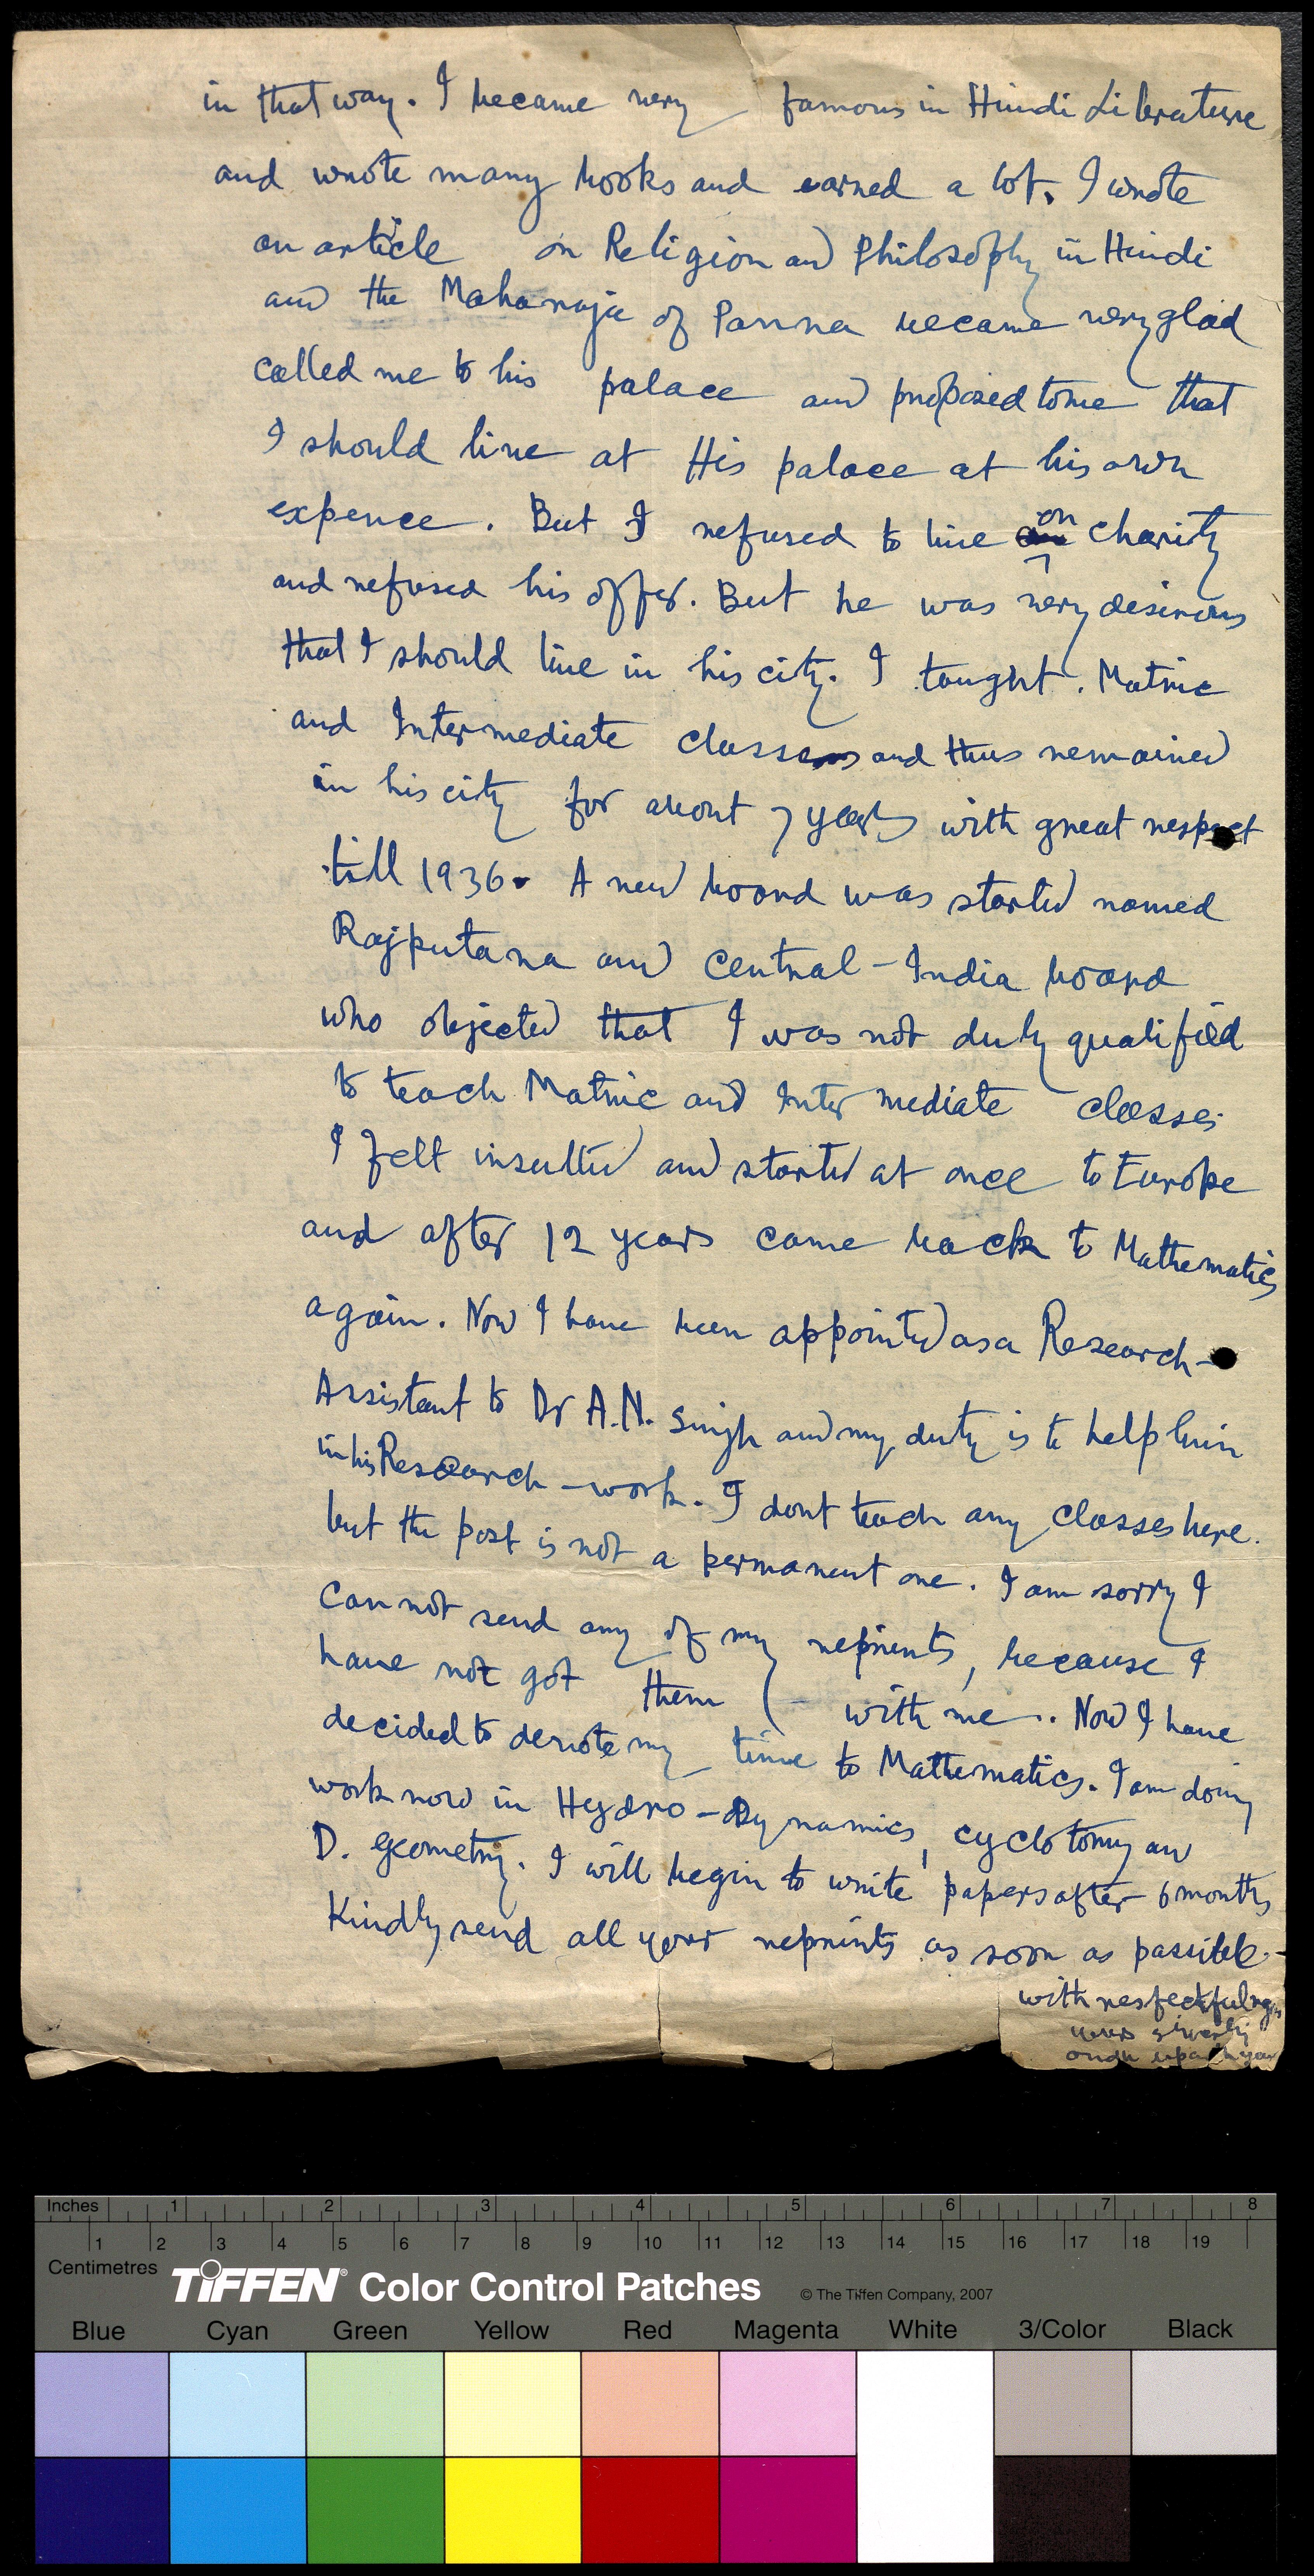 in that way. I became very famous in Hindi Literature
and wrote many books and earned a lot. I wrote
an article on Religion and Philosophy in Hindi
and the Maharaja of Panna became very glad
called me to his palace and proposed to me that
I should live at His palace at his own
expence. But I refused to live on charity
and refused his offer. But he was very desirous
that I should live in his city. I taught. Matric
and Intermediate classes and thus remained
in his city for about 7 years with great respect
till 1936. A new board was started named
Rajputana and Central-India board
who objected that I was not duly qualified
to teach Matric and Intermediate classes
I felt insulted and started at once to Europe
and after 12 years came back to Mathematics
again. Now I have been appointed as a Research-
Assistant to Dr A.N. Singh and my duty is to help him
in his Research-work. I dont teach any classes here.
but the post is not a permanent one. I am sorry I
can not send any of my reprints, because I
have not got them with me. Now I have
decided to devote my time to Mathematics. I am doing
work now in Hydro-Dynamics, cyclotomy and
D. geometry. I will begin to write papers after 6 months
Kindly send all your reprints as soon as possible.
with respectful
yours
Inches 1 2 3 4 5 6 7 8
1 2 3 4 5 6 7 8 9 10 11 12 13 14 15 16 17 18 19
Centimetres
TIFFEN® Color Control Patches © The Tiffen Company, 2007
Blue Cyan Green Yellow Red Magenta White 3/Color Black